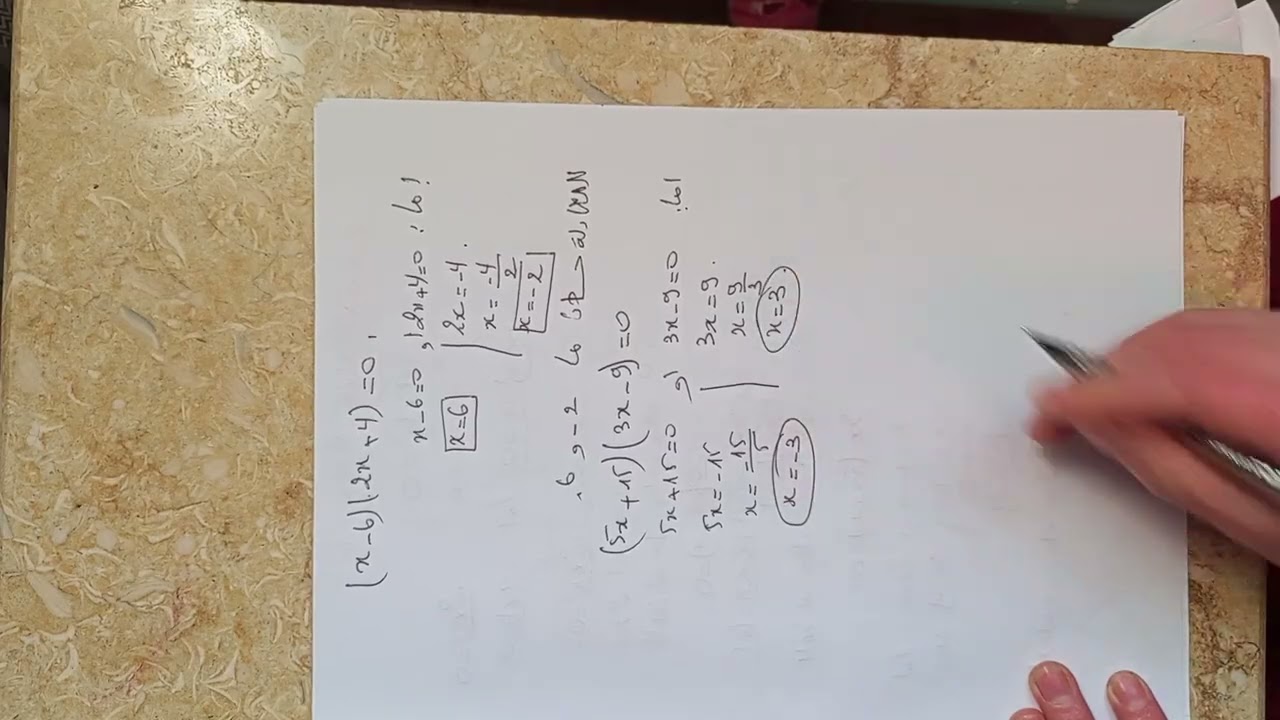 (x-6)(2x+4)=0.
x-6=0 , 2x+4=0 : إما
x=6 2x=-4.
x=-4/2
x=-2
5x+15)(3x-9)=0
5x+15=0 و 3x-9=0 إما:
5x=-15 3x=9.
x=-15/5 x=9/3
x=-3 x=3.